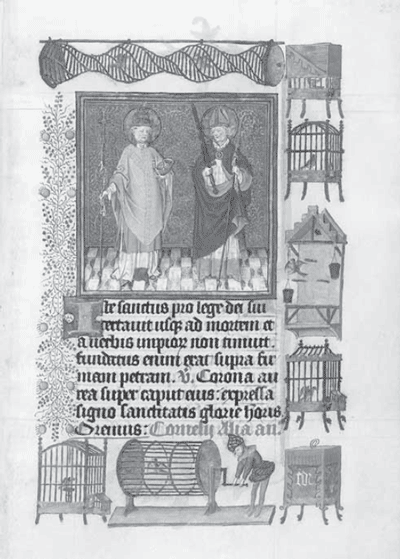 Iste sanctus pro lege dei sui
certauit usq; ad mortem et
a uerbis impior non timuit.
fundatus enim erat supra fir
mam petram. V. Corona au
rea super caput eius: expressa
signo sanctitatis glorie
Oremus: Cornely Alia an.